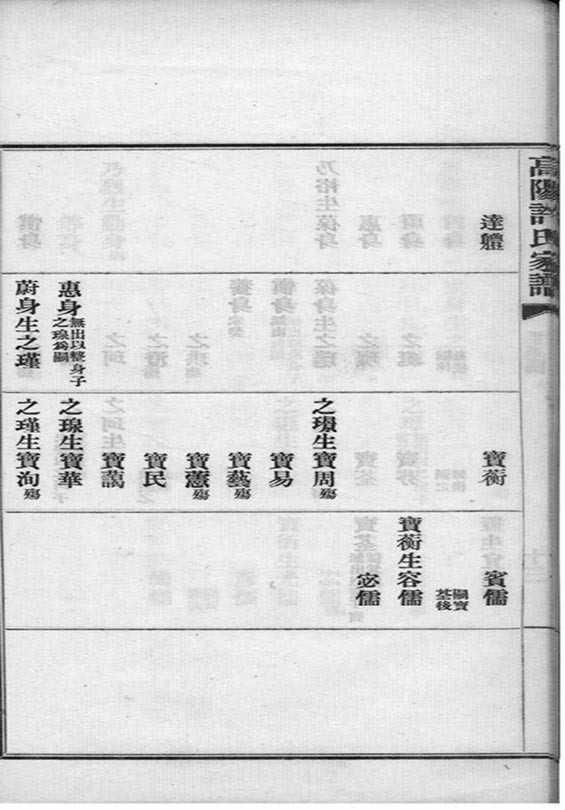 高陽許氏家譜
達軆
惠身 無出以整身子之瑔爲嗣
蔚身生之瑾
寶蘅
之生寶周殤
寶易
寶藝殤
寶憲殤
寶民
寶藹
之瑔生寶華
之瑾生寶洵殤
賓儒
嗣寶荃後
寶蘅生容儒
宓儒